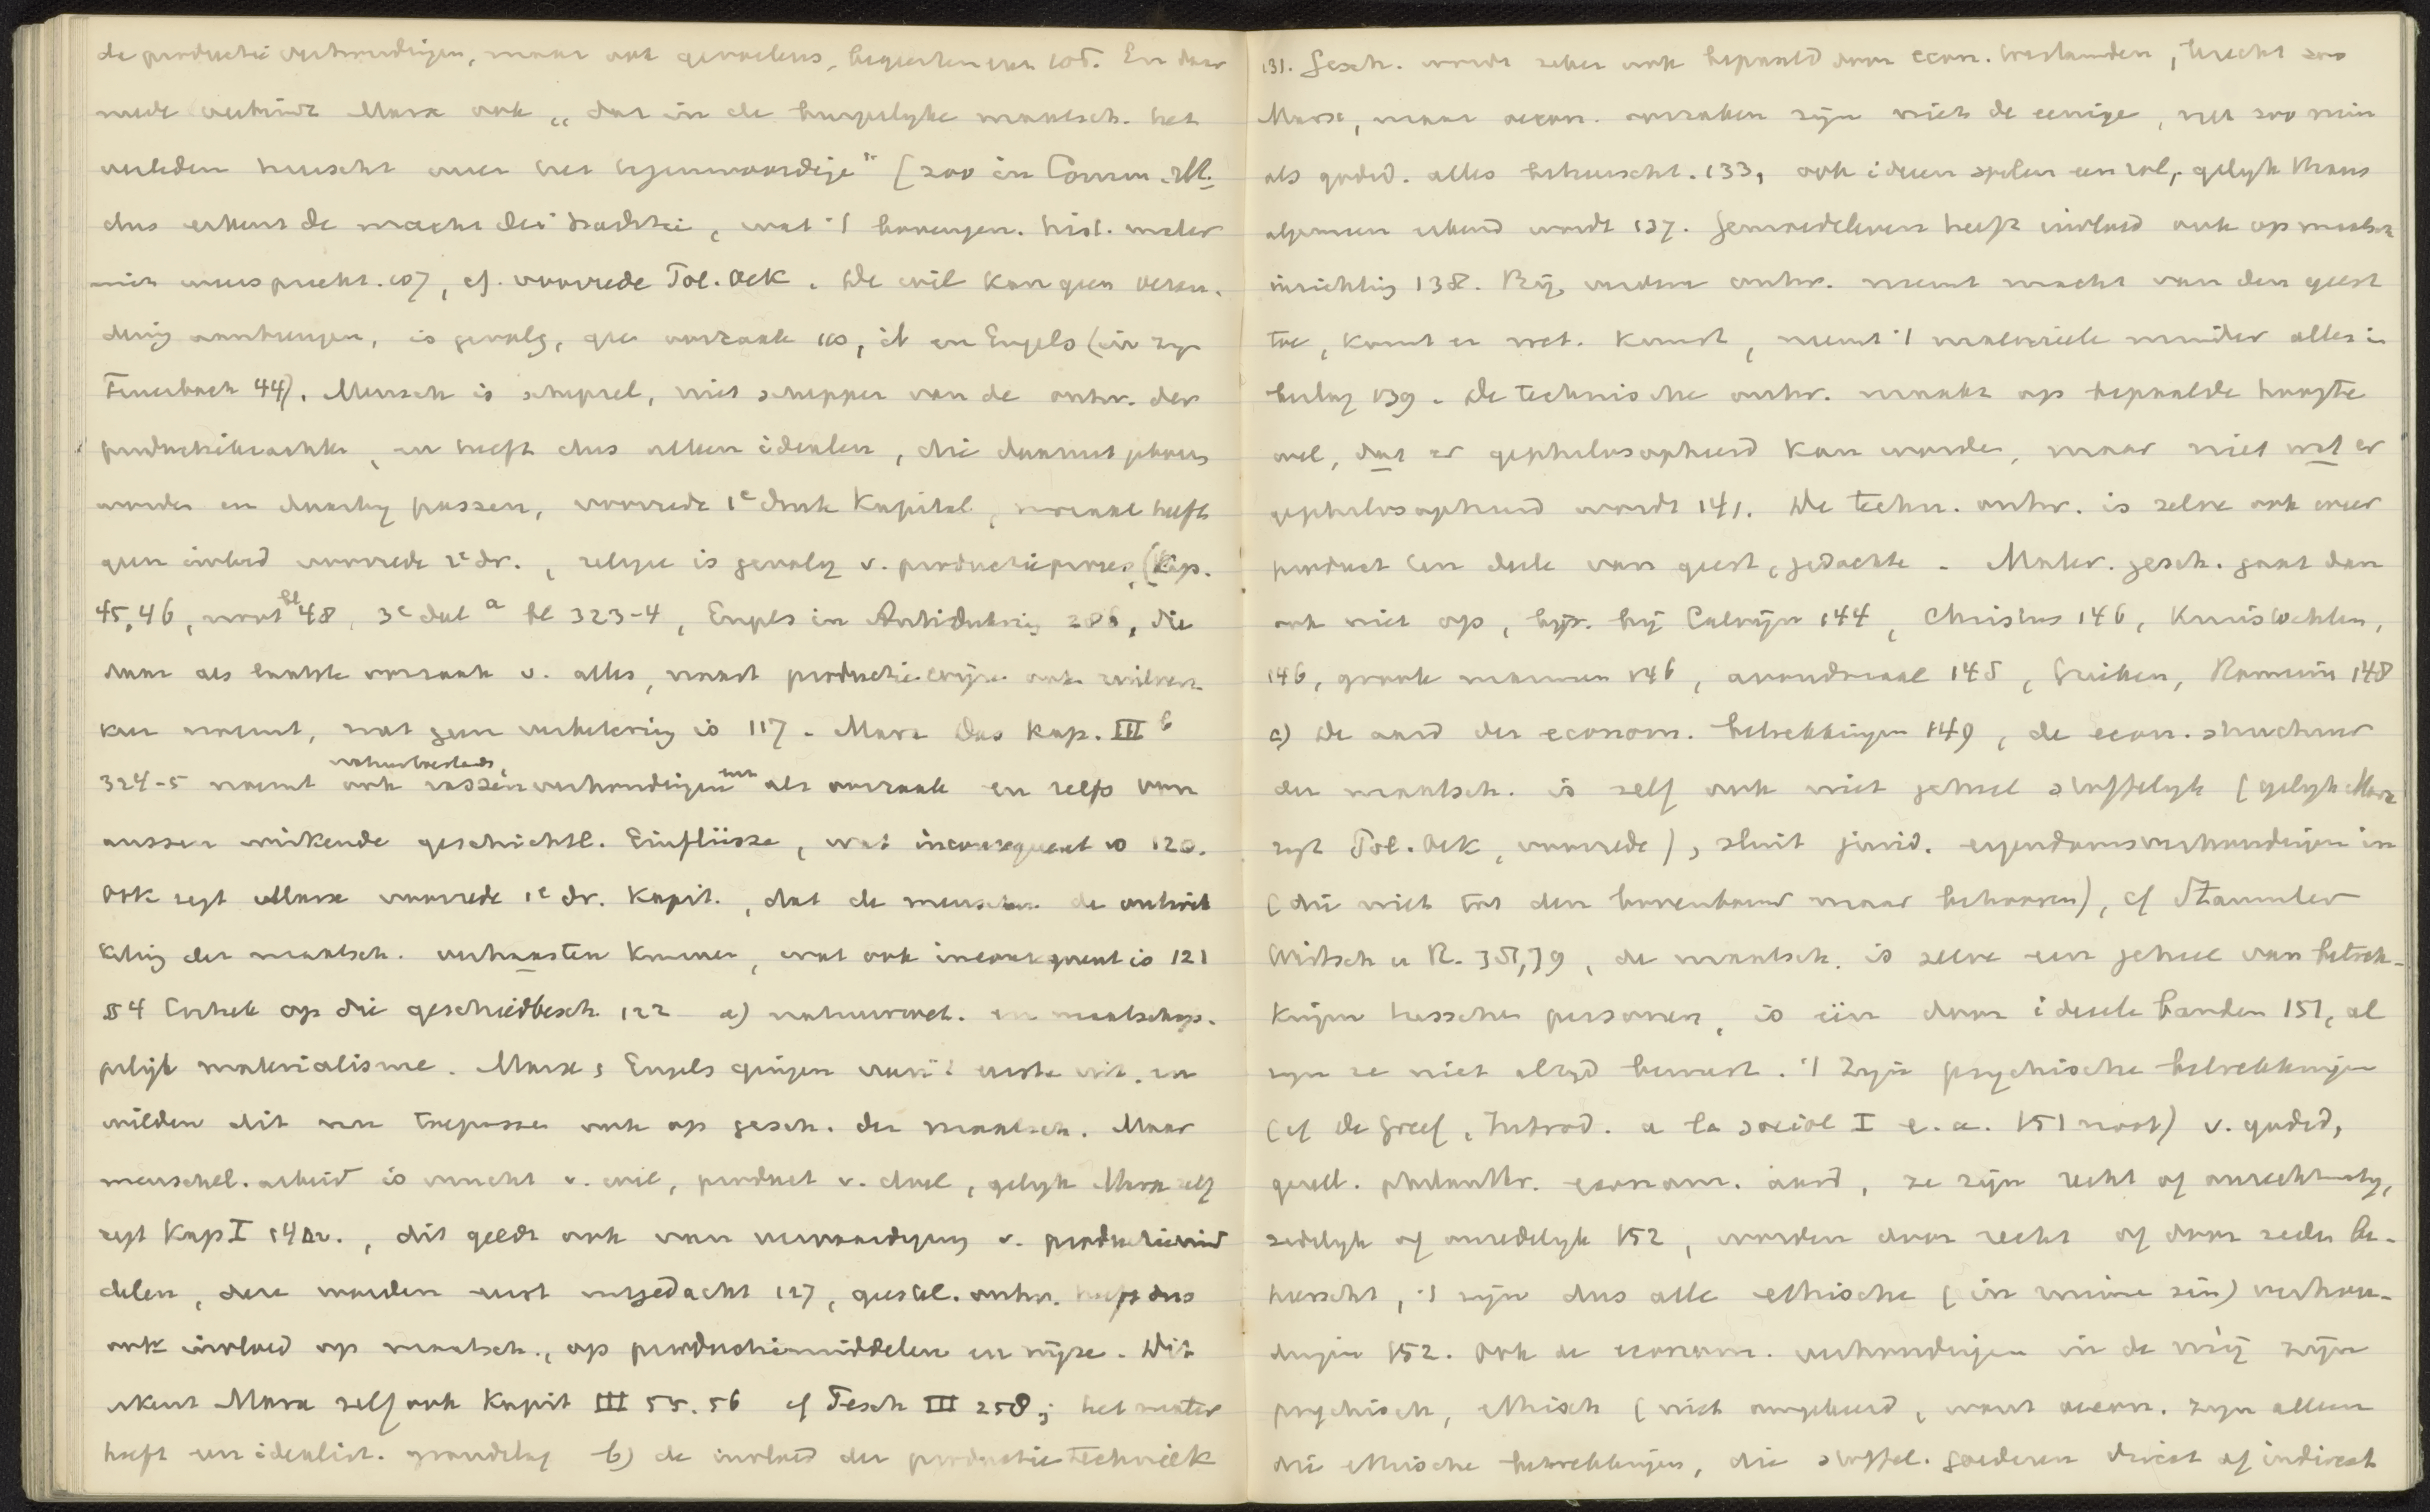 de productieverhoudingen, maar ook gevoelens, begeerten enz 105. En daar
mede verbindt Marx ook „dat in de burgerlyke maatsch. het
verleden heerscht over het tegenwoordige" (zoo in Comm. M.
dus erkent de macht der traditie, wat 't hist. mater
niet 107, cf. voorrede Pol. Oek. De wil kan geen veran-
dering aanbrengen, is gevolg, geen oorzaak 110, id en Engels (in zyn
Feuerbach 44). Mensch is schepsel, niet schepper van de ontw. der
productiekrachten, en heeft dus alleen idealen, die daaruit geboren
worden en daarby passen, voorrede 1e druk Kapital, moraal heeft
geen invloed voorrede 2e dr., religie is gevolg v. productieproces (Kap.
45, 46, noot bl 48, 3e deel a bl 323-4, Engels in Antiduhring 286, die
daar als laatste oorzaak v. alles, naast productiewijze ook ruilver-
keer noemt, wat geen verbetering is 117. Marx Das Kap. III b
324-5 noemt ook natuurbestaan, rassenverhoudingen enz als oorzaak en zelfs von
aussen wirkende geschichtl. Einflüsse, wat inconsequent is 120.
Ook zegt Marx voorrede 1e dr. Kapit., dat de menschen de ontwik
keling der maatsch. verhaasten kunnen, wat ook inconsequent is 121
§4 Critiek op die geschiedbesch. 122 a) natuurwet. en maatschap-
pelijk materialisme. Marx & Engels gingen van 't eerste uit, en
wilden dit nu toepassen ook op gesch. der maatsch. Maar
menschel. arbeid is vrucht v. wil, product v. doel, gelyk Marx zelf
zegt Kap I 140v., dit geldt ook van vervaardiging v. productiemid
delen, deze worden eerst uitgedacht 127, geestel. ontw. heeft dus
ook invloed op maatsch., op productiemiddelen en wijze. Dit
erkent Marx zelf ook Kapit III 55. 56 cf Pesch III 258; het mater
heeft een idealist. grondslag b) de invloed der productietechniek
131. Gesch. wordt zeker ook bepaald door econ. toestanden, terecht zoo
Marx, maar oecon. oorzaken zijn niet de eenige, net zoo min
als godsd. alles beheerscht. 133, ook ideeen spelen een rol, gelyk thans
algemeen erkend wordt 137. Gemoedsleven heeft invloed ook op maatsch
inrichting 138. Bij verdere ontw. neemt macht van den geest
toe, komt er wet. kunst, neemt 't materieele minder alles in
beslag 139. De technische ontw. maakt op bepaalde hoogte
wel, dat er gephilosopheerd kan worden, maar niet wat er
gephilosopheerd wordt 141. De techn. ontw. is zelve ook weer
product ten deele van geest, gedachte. Mater. gesch. gaat dan
ook niet op, bijv. bij Calvijn 144, Christus 146, Kruistochten,
146, groote mannen 146, avondmaal 148, Grieken, Romein 148
c) De aard der econom. betrekkingen 149, de econ. structuur
der maatsch. is zelf ook niet geheel stoffelyk (gelyk Marx
zegt Pol. Oek, voorrede), sluit jurid. eigendomsverhoudingen in
(die niet tot den bovenbouw maar behooren), cf Stammler
Wirtsch u R. 351,79, de maatsch. is zelve een geheel van betrek-
kingen tusschen personen, is één door ideeele banden 151, al
zyn ze niet altyd bewust. 't Zyn psychische betrekkingen
(cf de Greef, Introd. a la sociol I e. a. 151 noot) v. godsd,
gesell. econom. aard, ze zijn recht of onrechtmatig,
zedelyk of onzedelyk 152, worden door recht of door zeden be-
heerscht, 't zijn dus alle ethische (in ruime zin) verhou-
dingen 152. Ook de econom. verhoudingen in de mij zijn
psychisch, ethisch (niet omgekeerd, want oecon. zyn alleen
die ethische betrekkingen, die stoffel. goederen direct of indirect